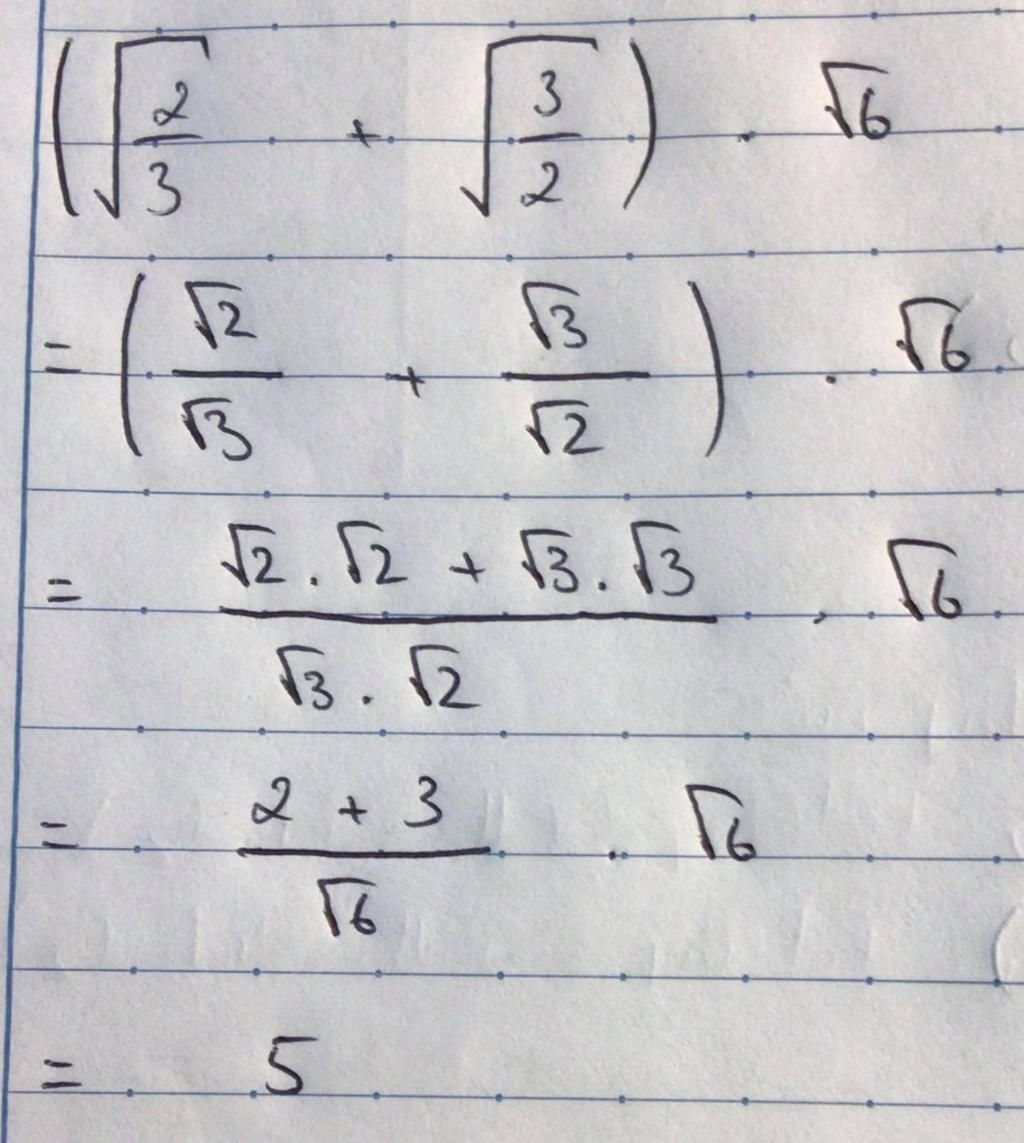 (√(2/3) + √(3/2)) . √6
= (√2/√3 + √3/√2) . √6
= (√2 . √2 + √3 . √3)/(√3 . √2) . √6
= (2 + 3)/√6 . √6
= 5